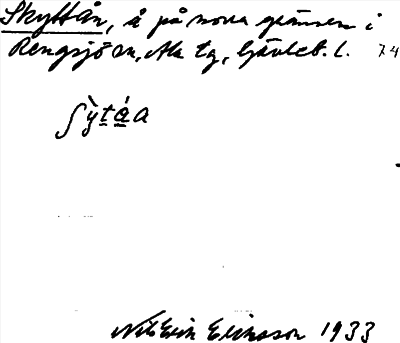 Skyttån, å på norra gränsen i
Rengsjö sn, Ala tg, Gävleb. l. 74
ʃỳt̲á̲a
Nils Erik Elinsson 1933